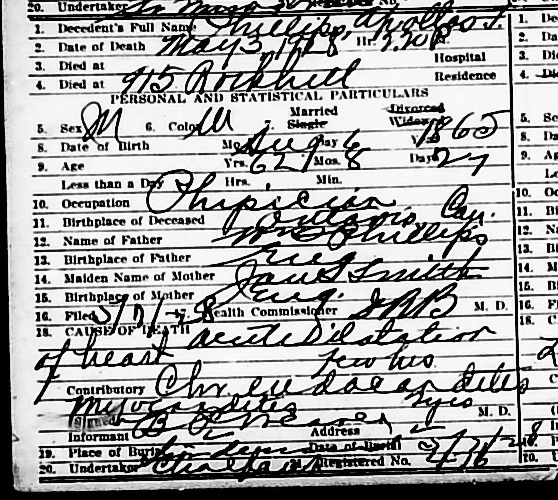 20. Undertaker
1. Decedent's Full Name Phillips, Apollos J.
2. Date of Death May 3, 1928, Hr. 2.20 P
3. Died at Hospital
4. Died at 915 Rockhill Residence
PERSONAL AND STATISTICAL PARTICULARS
5. Sex M 6. Color W 7. Married Single Divorced Widowed
8. Date of Birth Mo. Aug Day 6 1865
9. Age Yrs. 62 Mos. 8 Days 27
Less than a Day Hrs. Min.
10. Occupation Physician
11. Birthplace of Deceased Ontario, Can.
12. Name of Father Wm Phillips
13. Birthplace of Father Eng
14. Maiden Name of Mother Jane Smith
15. Birthplace of Mother Eng.
16. Filed Health Commissioner M. D.
18. CAUSE OF DEATH acute dilatation
of heart few hrs
Contributory Chr. endocarditis
Myocarditis 2 yrs
Signed M. D.
Informant Address
19. Place of Burial Date of Burial
20. Undertaker Registered No.